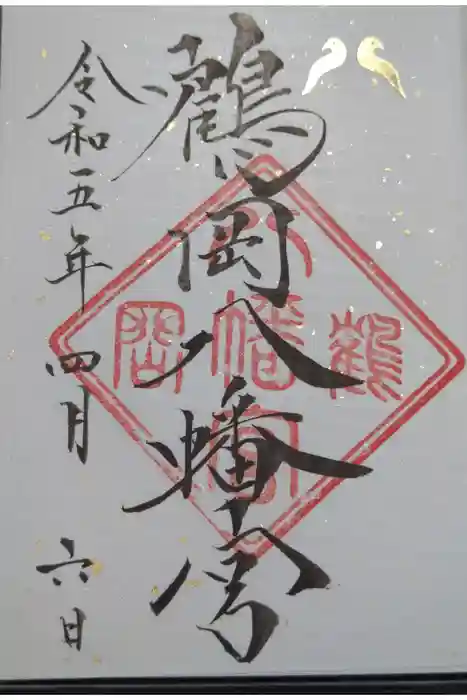 鶴岡八幡宮
令和五年四月六日
鶴
八幡宮
岡